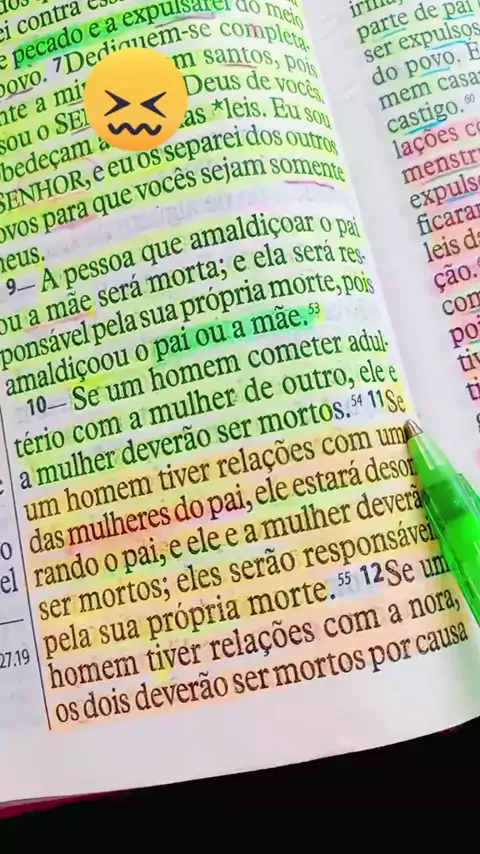 ei contra ess
e pecado e a expulsarei do meio
povo. 7Dediquem-se completa-
nte a mi m santos, pois
sou o SE Deus de vocês.
bedeçam as *leis. Eu sou
SENHOR, e eu os separei dos outros
ovos para que vocês sejam somente
meus.
9— A pessoa que amaldiçoar o pai
ou a mãe será morta; e ela será res-
ponsável pela sua própria morte, pois
amaldiçoou o pai ou a mãe.53
10— Se um homem cometer adul-
tério com a mulher de outro, ele e
a mulher deverão ser mortos.54 11Se
um homem tiver relações com um
das mulheres do pai, ele estará deson
rando o pai, e ele e a mulher deverã
ser mortos; eles serão responsávei
pela sua própria morte.55 12Se um
homem tiver relações com a nora,
os dois deverão ser mortos por causa
o
el
27.19
parte de pai
ser expulsos
do povo. E
mem casa
castigo.60
lações co
menstr
expuls
ficarar
leis da
ção.
com
poi
tiv
ti